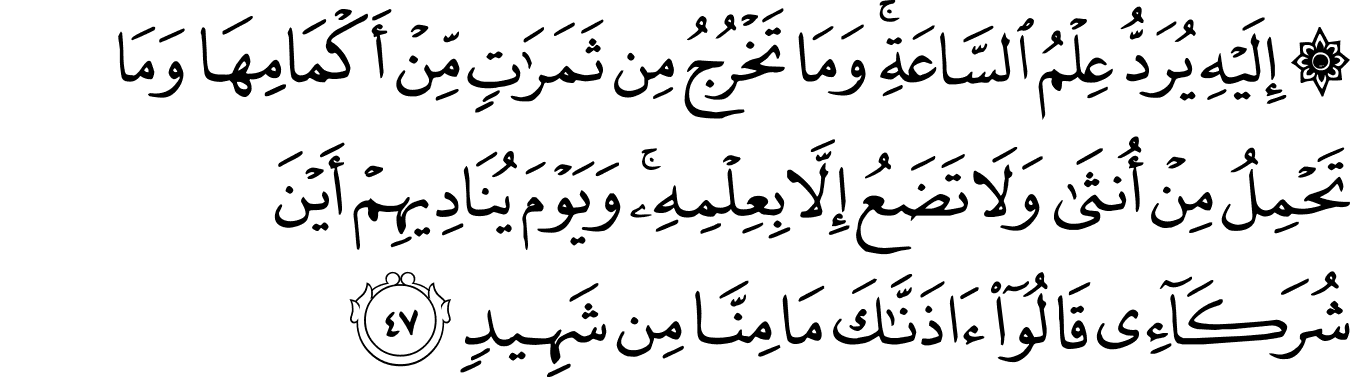 ۞ إِلَيْهِ يُرَدُّ عِلْمُ ٱلسَّاعَةِ ۚ وَمَا تَخْرُجُ مِن ثَمَرَٰتٍ مِّنْ أَكْمَامِهَا وَمَا
تَحْمِلُ مِنْ أُنثَىٰ وَلَا تَضَعُ إِلَّا بِعِلْمِهِۦ ۚ وَيَوْمَ يُنَادِيهِمْ أَيْنَ
شُرَكَآءِى قَالُوٓا۟ ءَاذَنَّـٰكَ مَا مِنَّا مِن شَهِيدٍ ٤٧